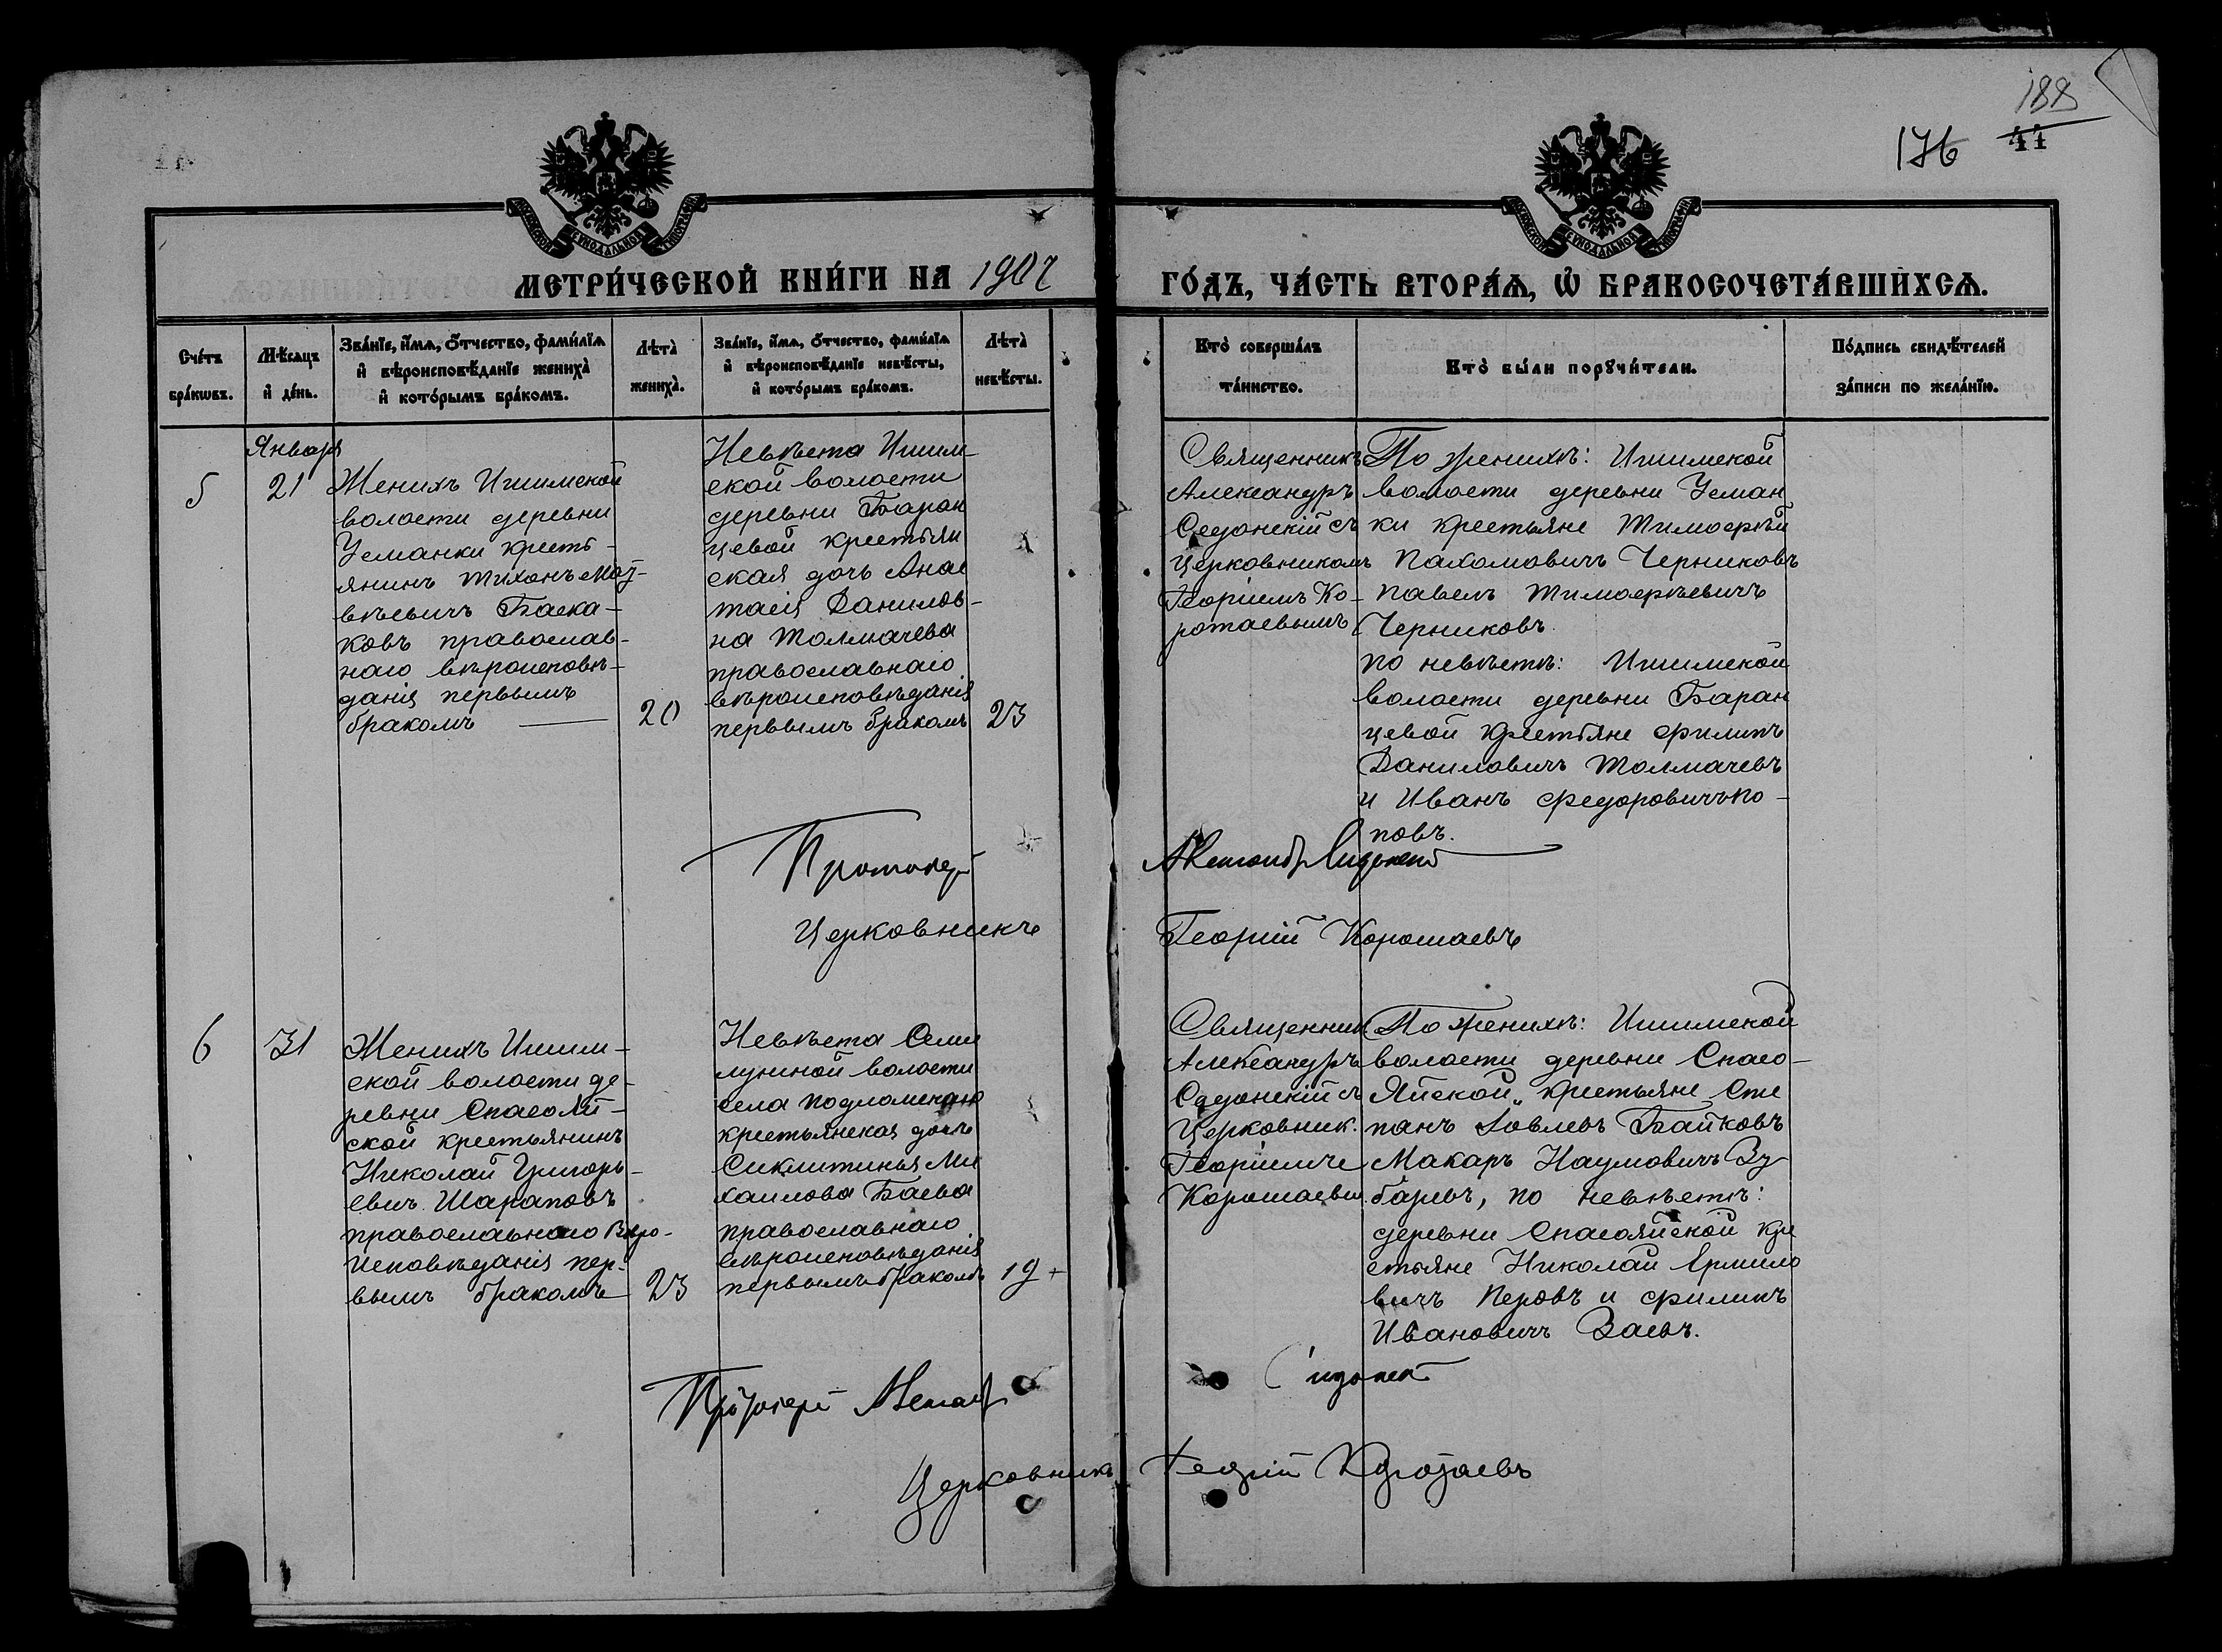 188
176 44
МЕТРИ́ЧЕСКОЙ КНИ́ГИ НА 1907
ГО́ДЪ, ЧА́СТЬ ВТОРА́Ѧ, Ѡ҆ БРАКОСОЧЕТА́ВШИХСѦ.
Сче́тъ бра́кѡвъ.
Мѣ́сяцъ и҆ де́нь.
Зва́нїе, и҆́мѧ, о҆́тчество, фами́лїѧ
и҆ вѣроисповѣ́данїе жениха̀
и҆ кото́рымъ бра́комъ.
Лѣта̀ жениха̀.
Зва́нїе, и҆́мѧ, о҆́тчество, фами́лїѧ
и҆ вѣроисповѣ́данїе невѣ́сты,
и҆ кото́рымъ бра́комъ.
Лѣта̀ невѣ́сты.
Кто̀ соверша́лъ
та́инство.
Кто̀ бы́ли порꙋчи́тели.
По́дпись свидѣ́телей
за́писи по жела́нїю.
5
Января
21
Женихъ Ишимской
волости деревни
Усманки кресть-
янинъ Тихонъ Мат-
вѣевичъ Баска-
ковъ православ-
наго вѣроисповѣ-
данія первымъ
бракомъ
20
Невѣста Ишим-
ской волости
деревни Баран
цевой крестьян
ская дочь Анас
тасія Данилов-
на Толмачева
православнаго
вѣроисповѣданія
первымъ бракомъ
23
Священникъ
Александръ
Сидонскій съ
церковникомъ
Георгіемъ Ко-
ротаевымъ
По женихѣ: Ишимской
волости деревни Усман
ки крестьяне Тимофѣй
Пахомовичъ Черниковъ
Павелъ Тимофѣевичъ
Черниковъ
по невѣстѣ: Ишимской
волости деревни Баран
цевой крестьяне Филипъ
Даниловичъ Толмачевъ
и Иванъ Федоровичъ По-
повъ.
Протоіерей Александръ Сидонскій
Церковникъ Георгій Коротаевъ
6
31
Женихъ Ишим-
ской волости де-
ревни Спасояй-
ской крестьянинъ
Николай Григорь-
евичъ Шараповъ
православнаго вѣро-
исповѣданія пер-
вымъ бракомъ
23
Невѣста Семи
лужной волости
села Подломскаго
крестьянская дочь
Сиклитинья Ми
хаилова Баева
православнаго
вѣроисповѣданія
первымъ бракомъ
19
Священник
Александръ
Сидонскій съ
Церковник.
Георгіемъ
Коротаевым.
По женихѣ: Ишимской
волости деревни Спасо-
Яйской крестьяне Сте
панъ Іовлевъ Байковъ
Макаръ Наумовичъ Зу
баревъ, по невѣстѣ:
деревни Спасояйской кре
стьяне Николай Ермило
вичъ Перовъ и Филипъ
Ивановичъ Заевъ.
Протоіерей Александръ Сидонскій
Церковникъ Георгій Коротаевъ